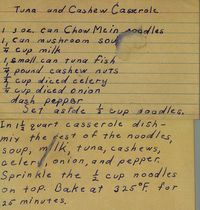 Tuna and Cashew Casserole
1 3 oz. can Chow Mein noodles
1 can mushroom soup
1/4 cup milk
1 small can tuna fish
1/4 pound cashew nuts
1 cup diced celery
1/4 cup diced onion
dash pepper
Set aside 1/2 cup noodles.
In 1 1/2 quart casserole dish-
mix the rest of the noodles,
soup, milk, tuna, cashews,
celery, onion, and pepper.
Sprinkle the 1/2 cup noodles
on top. Bake at 325°F. for
25 minutes.